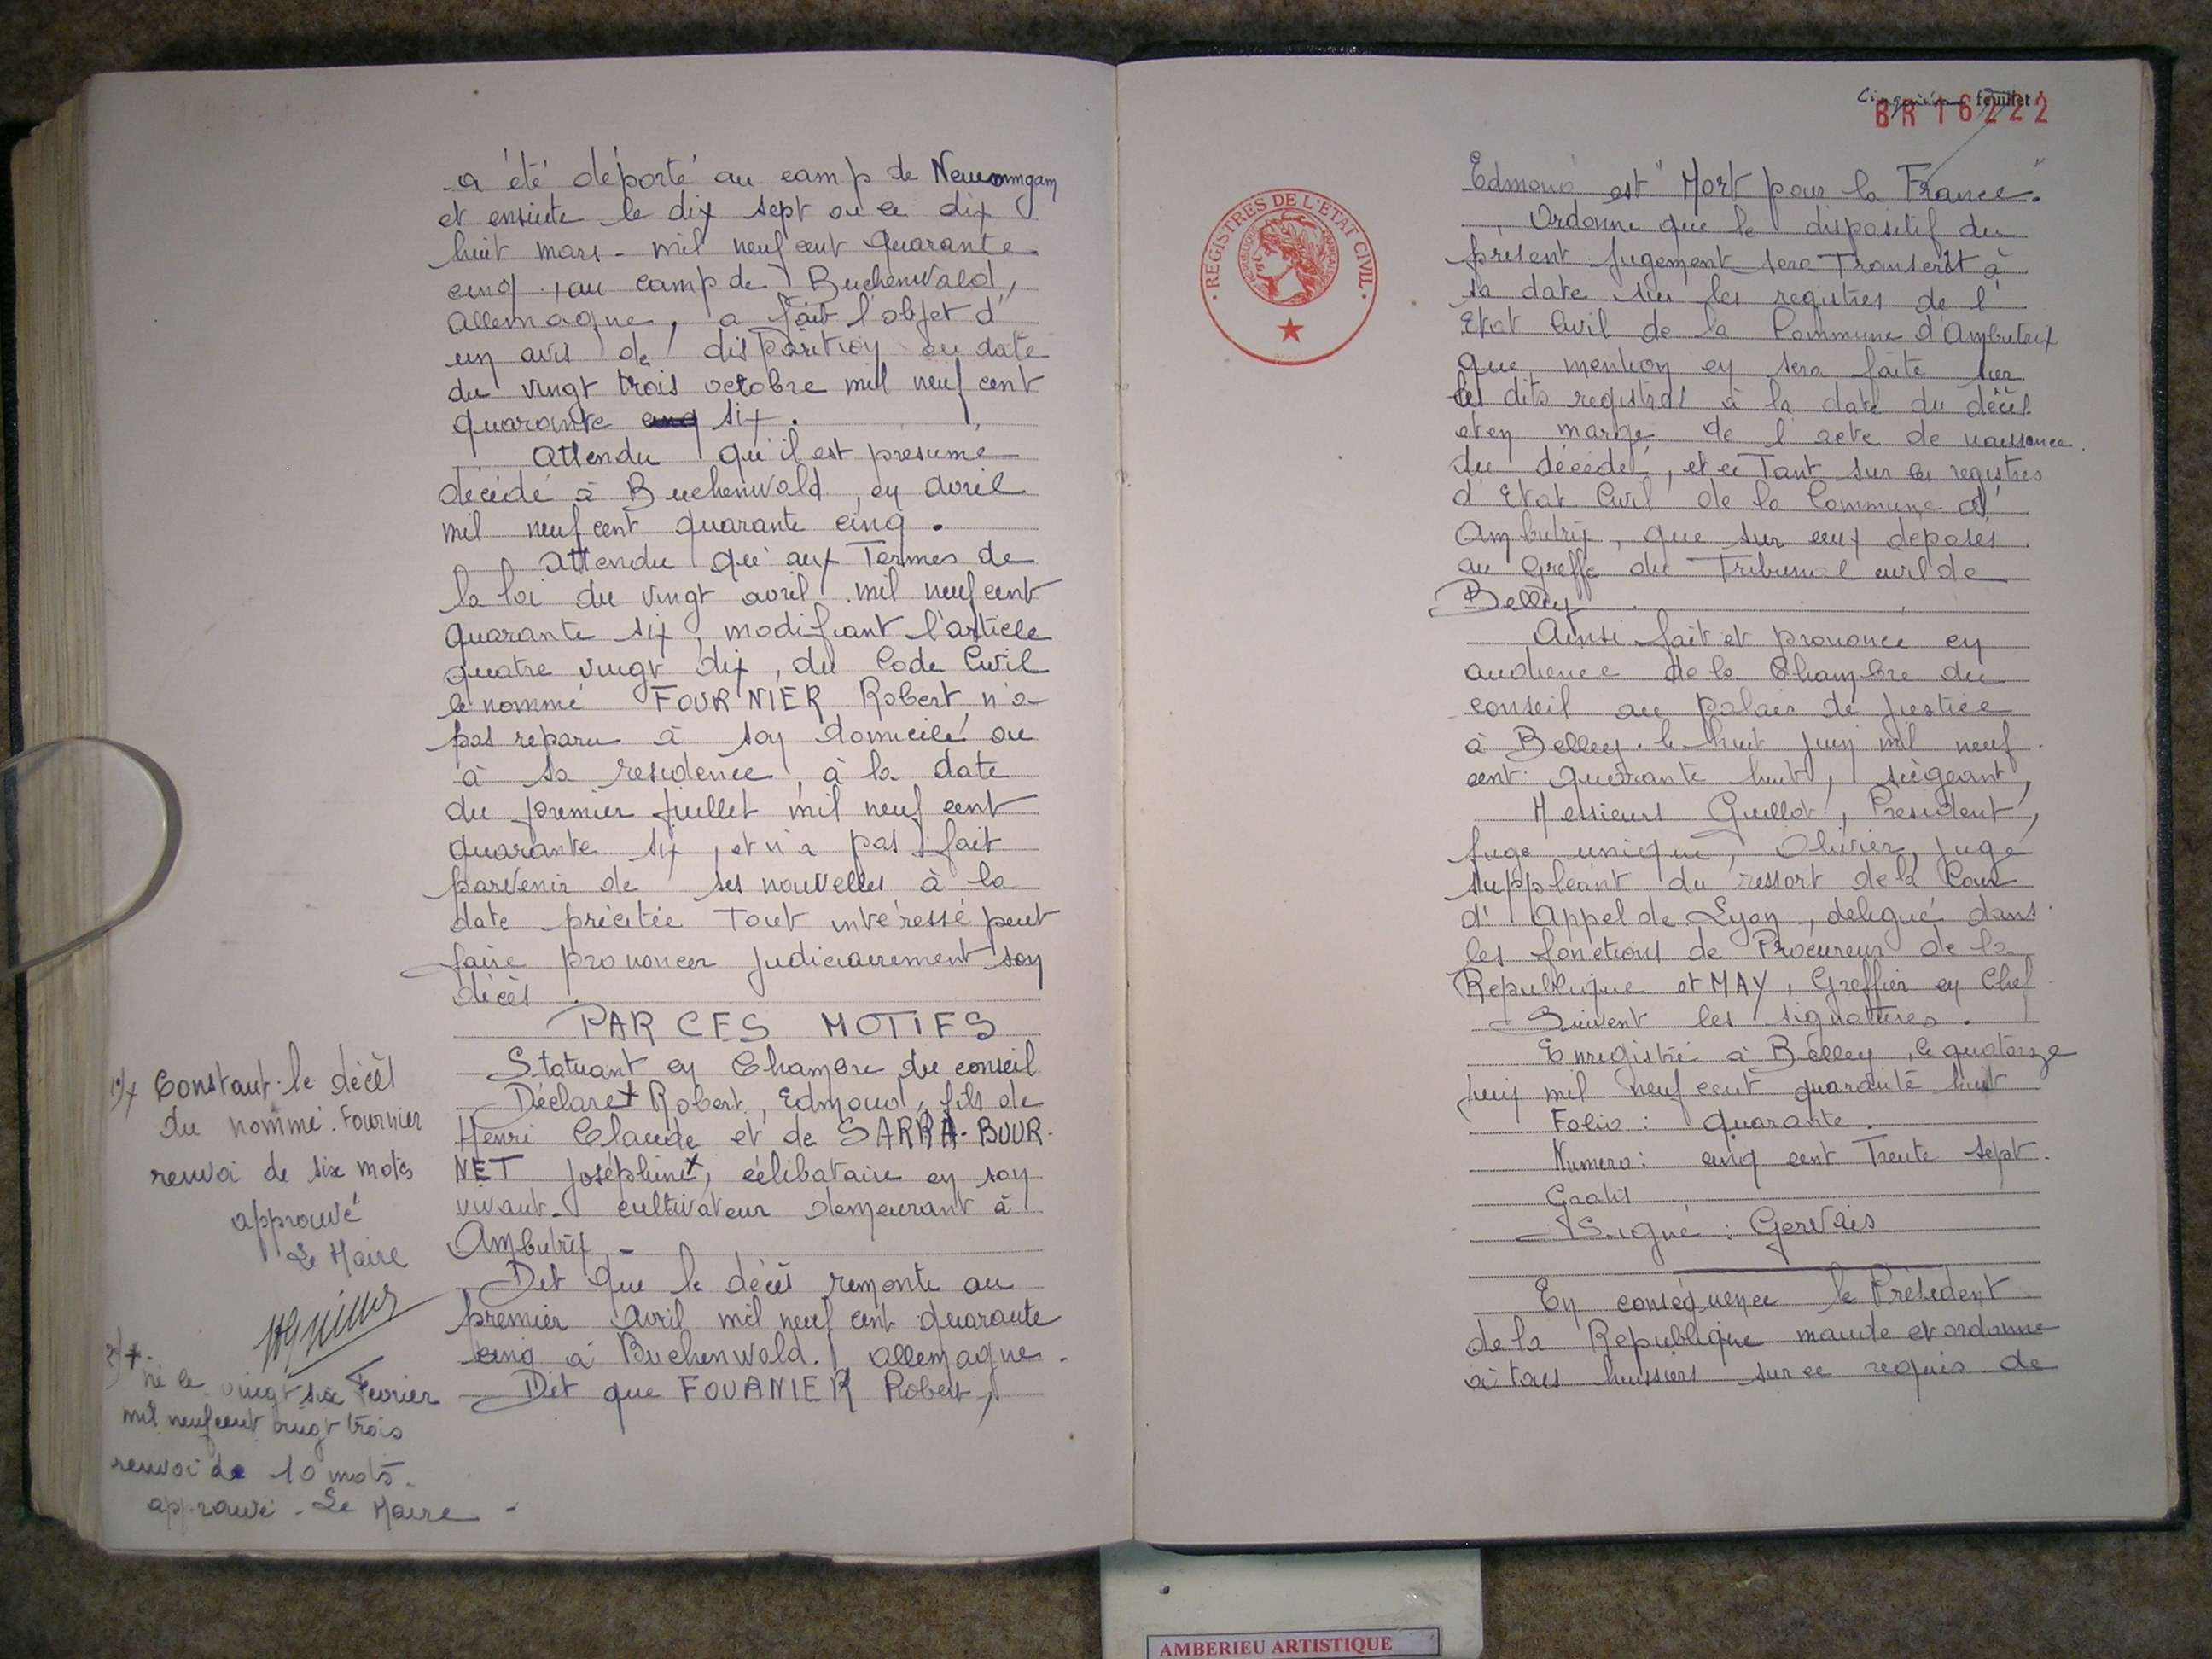 a été déporté au camp de Neuommgam
et ensuite le dix sept ou le dix
huit mars - mil neuf cent quarante
cinq, au camp de Buchenwald,
Allemagne, a fait l'objet d'
un avis de disparition en date
du vingt trois octobre mil neuf cent
quarante cinq six.
Attendu qu'il est présumé
décédé à Buchenwald, en avril
mil neuf cent quarante cinq.
Attendu qu'aux Termes de
la loi du vingt avril mil neuf cent
quarante six, modifiant l'article
quatre vingt dix, du Code Civil
le nommé FOURNIER Robert n'a
pas reparu à son domicile ou
à sa residence, à la date
du premier Juillet mil neuf cent
quarante six, et n'a pas fait
parvenir de ses nouvelles à la
date précitée Tout intéressé peut
faire prononcer judiciairement son
décès.
PAR CES MOTIFS
Statuant en Chambre du conseil
Déclare + Robert, Edmond, fils de
Henri Claude et de SARRA-BOUR-
NET Joséphine +, célibataire en son
vivant - cultivateur demeurant à
Ambutrix -
Dit que le décès remonte au
premier Avril mil neuf cent quarante
cinq à Buchenwald. Allemagne.
Dit que FOURNIER Robert,
1)+ Constant le décès
du nommé Fournier
renvoi de six mots
approuvé
Le Maire
2)+
né le vingt six Fevrier
mil neuf cent vingt trois
renvoi de 10 mots.
approuvé - Le Maire -
Cinquième feuillet
BR 16222
REGISTRES DE L'ETAT CIVIL
Edmond est "Mort pour la France".
Ordonne que le dispositif du
présent jugement sera Transcrit à
sa date sur les registres de l'
Etat Civil de la Commune d'Ambutrix
que mention en sera faite sur
les dits registres à la date du décès
et en marge de l'acte de naissance
du décédé, et ce Tant sur les registres
d'Etat Civil de la Commune d'
Ambutrix, que sur ceux deposés
au Greffe du Tribunal civil de
Belley.
Ainsi fait et prononcé en
audience de la Chambre du
conseil au Palais de Justice
à Belley. le huit juin mil neuf
cent quarante huit, siégeant,
Messieurs Guillot, President,
Juge unique, Olivier, juge
suppléant du ressort de la Cour
d'Appel de Lyon, delegué dans
les fonctions de Procureur de la
Republique et MAY, Greffier en Chef
Suivent les signatures.
Enregistré à Belley, le quatorze
juin mil neuf cent quarante huit
Folio : quarante.
Numero : cinq cent Trente sept.
Gratis
Signé : Gervais
En conséquence le Président
de la Republique mande et ordonne
à tous huissiers sur ce requis de
AMBERIEU ARTISTIQUE